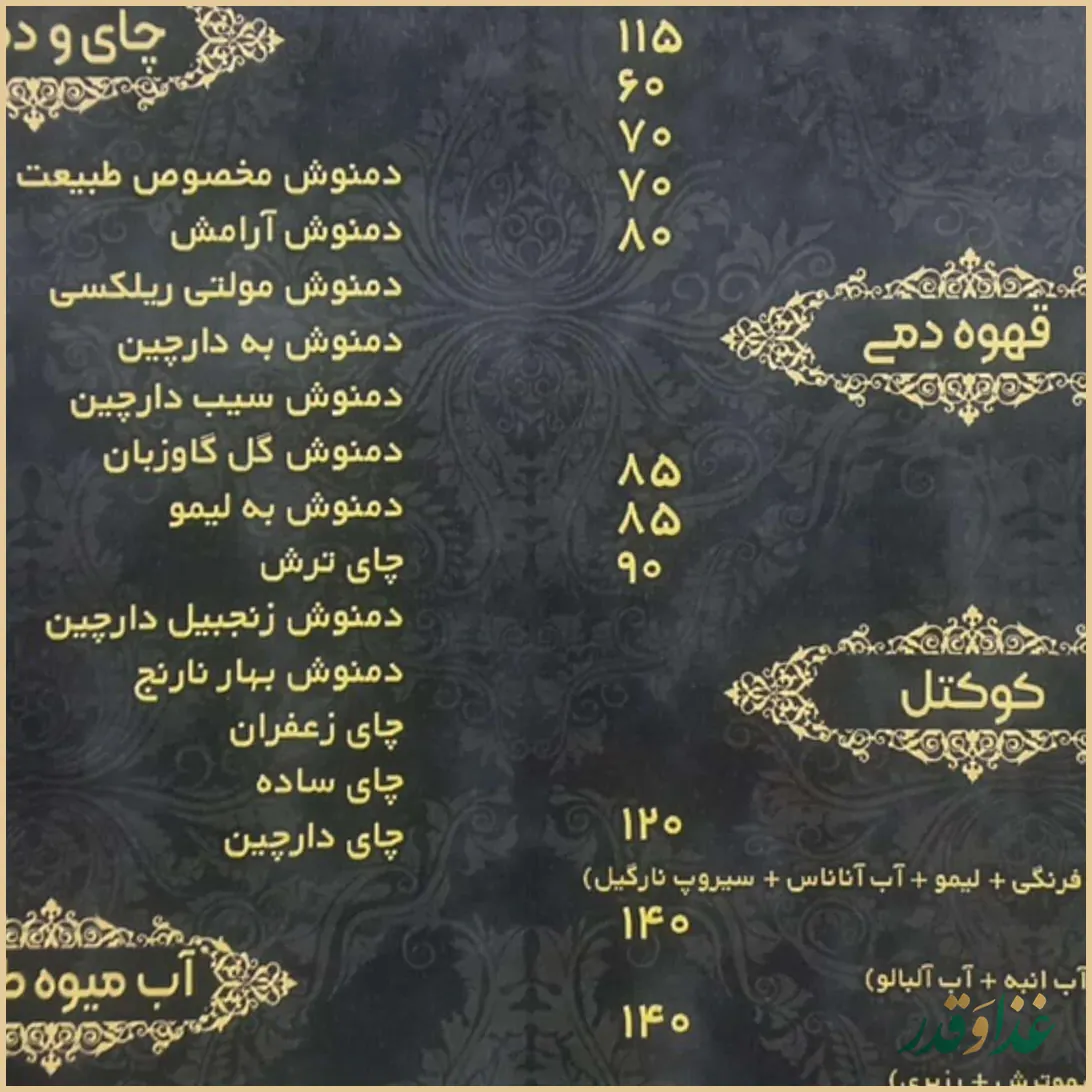 ۱۱۵
۶۰
۷۰
۷۰
۸۰
قهوه دمی
۸۵
۸۵
۹۰
کوکتل
۱۲۰
فرنگی + لیمو + آب آناناس + سیروپ نارگیل)
۱۴۰
آب انبه + آب آلبالو)
۱۴۰
چای و
دمنوش مخصوص طبیعت
دمنوش آرامش
دمنوش مولتی ریلکسی
دمنوش به دارچین
دمنوش سیب دارچین
دمنوش گل گاوزبان
دمنوش به لیمو
چای ترش
دمنوش زنجبیل دارچین
دمنوش بهار نارنج
چای زعفران
چای ساده
چای دارچین
آب میوه
غذا و قدر